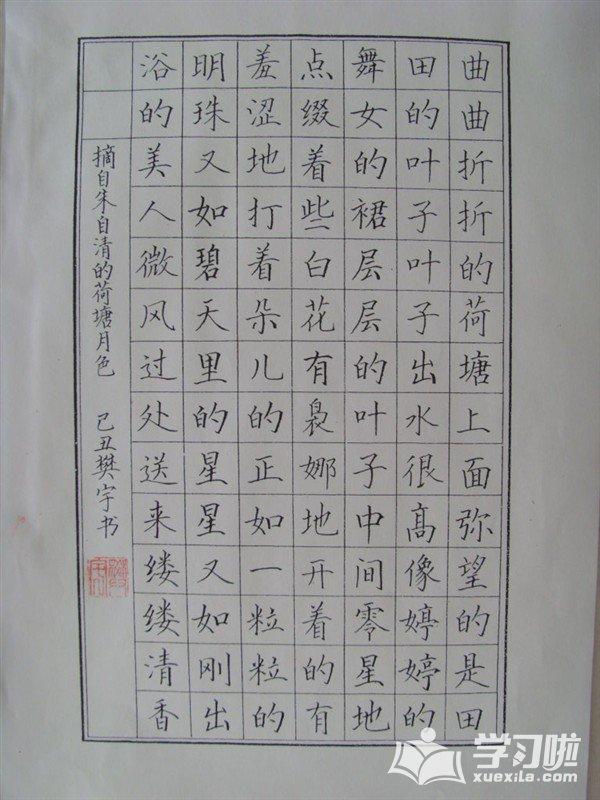 曲曲折折的荷塘上面弥望的是田
田的叶子叶子出水很高像婷婷的
舞女的裙层层的叶子中间零星地
点缀着些白花有袅娜地开着的有
羞涩地打着朵儿的正如一粒粒的
明珠又如碧天里的星星又如刚出
浴的美人微风过处送来缕缕清香
摘自朱自清的荷塘月色 己丑樊宇书
学习啦
xuexila.com